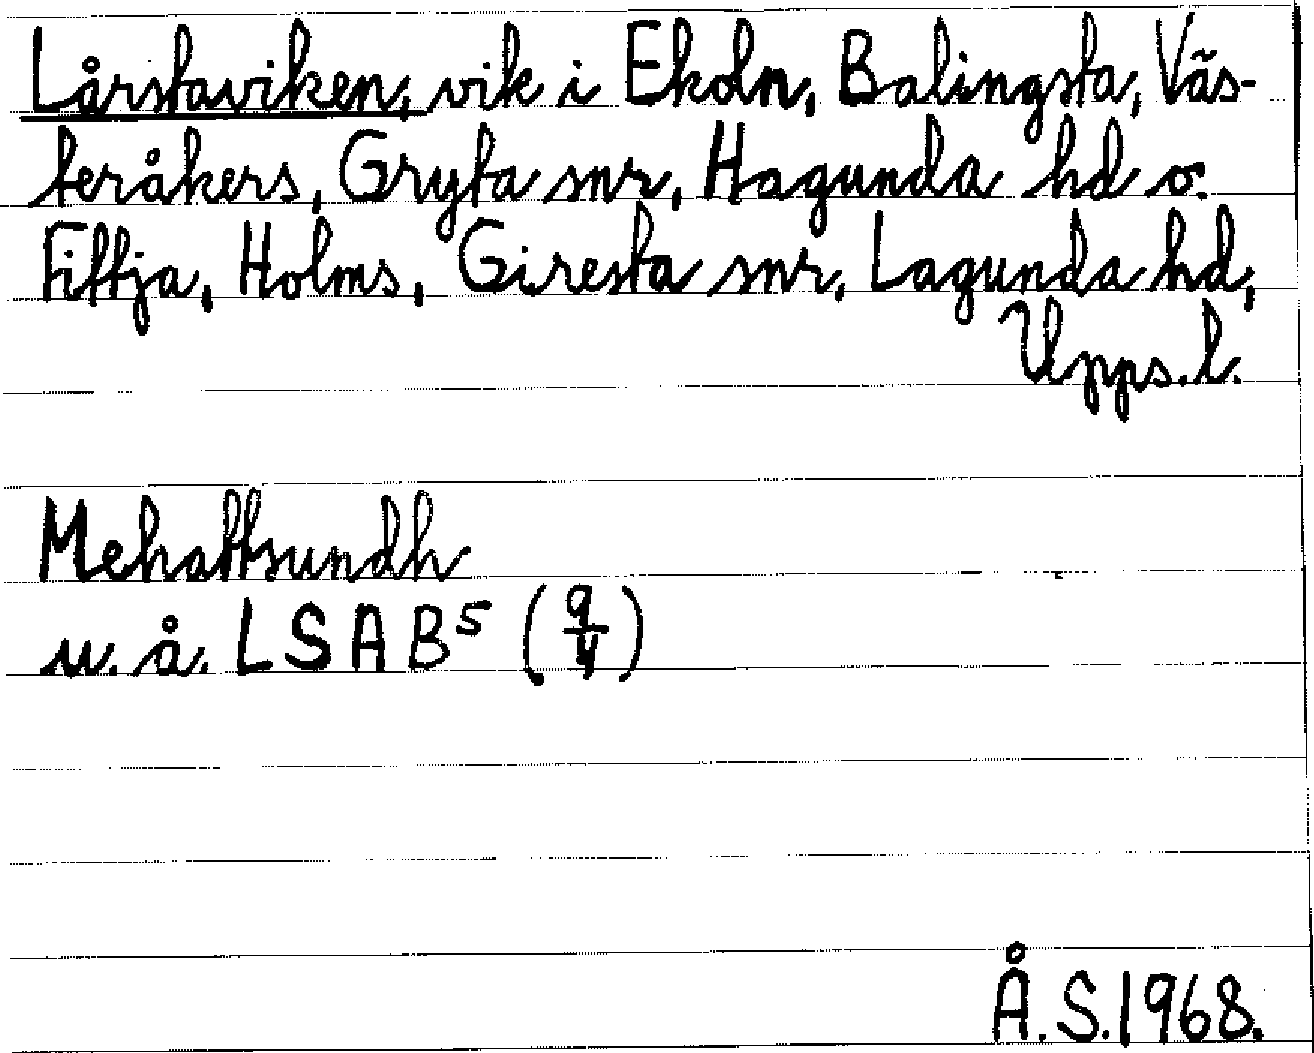 Lårstaviken, vik i Ekoln, Balingsta, Väs-
teråkers, Gryta snr, Hagunda hd o.
Fittja, Holms, Giresta snr, Lagunda hd,
Upps. l.
Mehattsundh
u. å. LSAB⁵ (9/4)
Å. S. 1968.